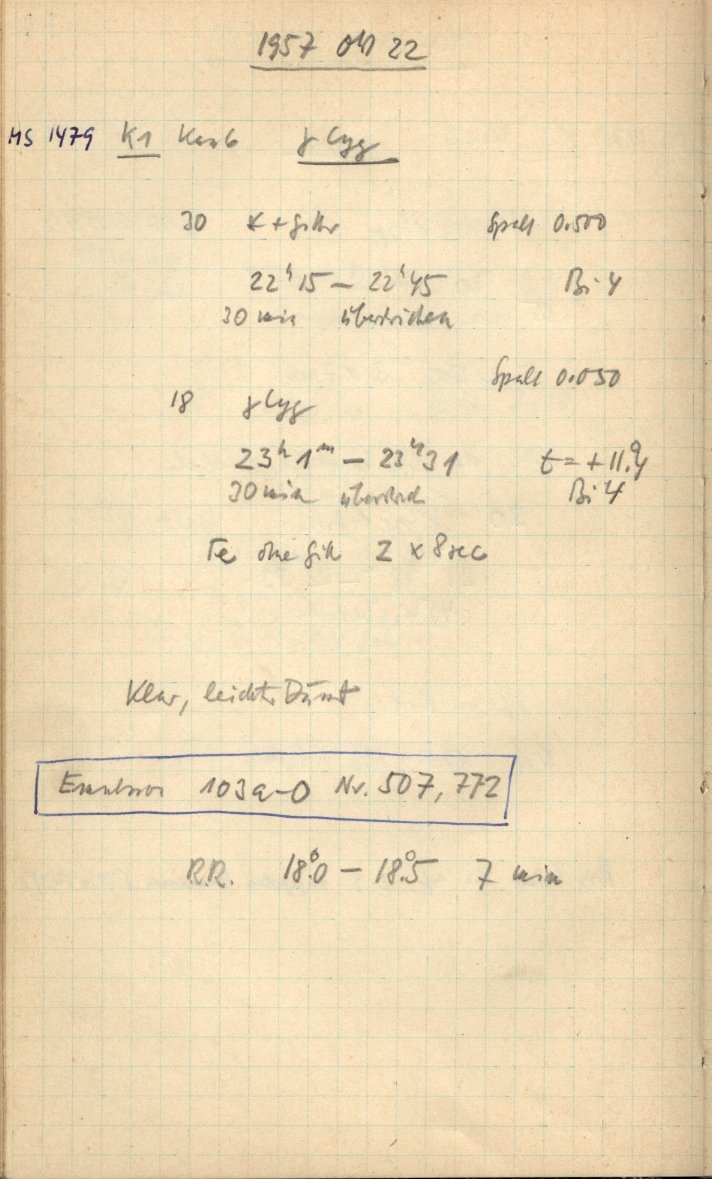 1957 Okt 22
MS 1479 K1 Kas6 γ Cyg
30 K + Gitter Spalt 0.500
22ʰ15 — 22ʰ45 Bi 4
30 min überstrichen
Spalt 0.050
18 γ Cyg
23ʰ1ᵐ — 23ʰ31 t = + 11.°4
30 min überstrich
Fe ohne Gitt 2 x 8 sec
Klar, leichter Dunst
Emulsion 103a-O Nr. 507, 772
R.R. 18.°0 — 18.°5 7 min